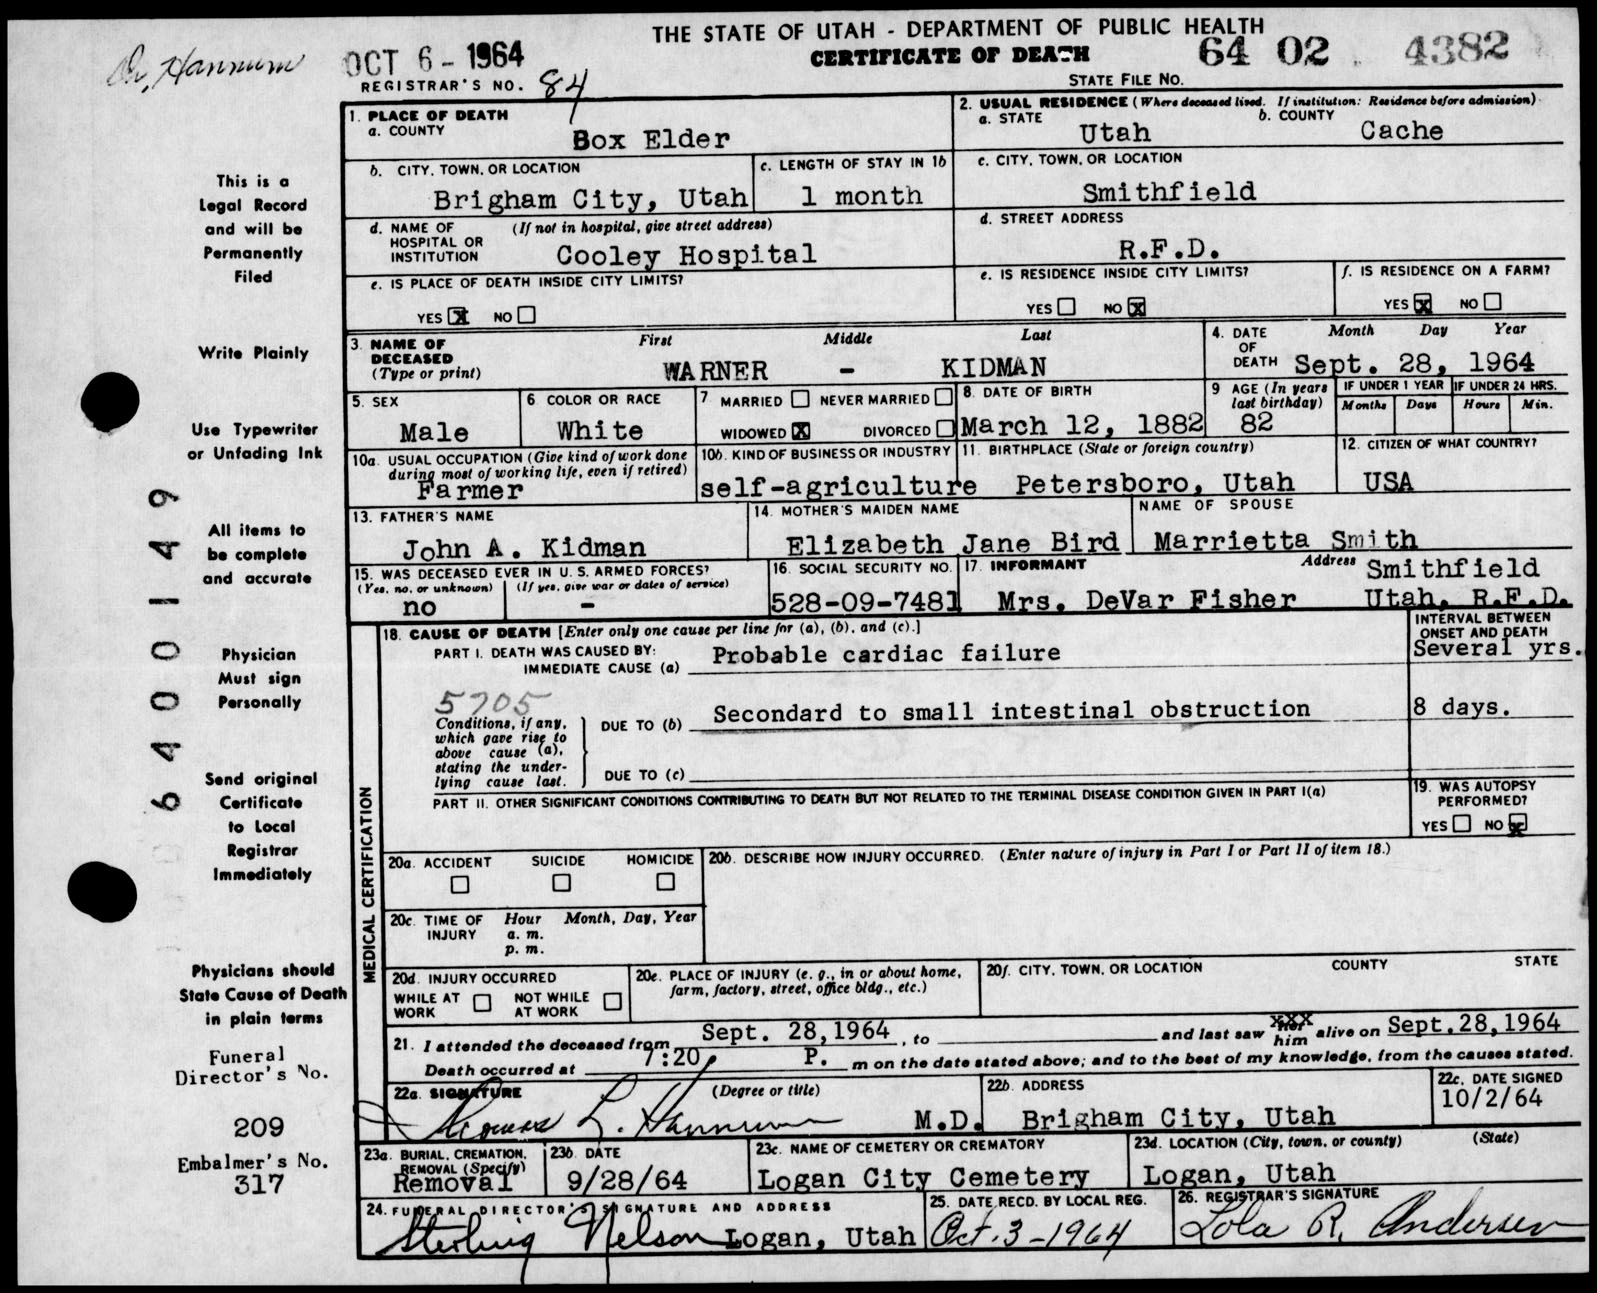 THE STATE OF UTAH - DEPARTMENT OF PUBLIC HEALTH
CERTIFICATE OF DEATH
64 02 4382
STATE FILE NO.
Dr. Hannum
OCT 6 - 1964
REGISTRAR'S NO. 84
This is a
Legal Record
and will be
Permanently
Filed
Write Plainly
Use Typewriter
or Unfading Ink
All items to
be complete
and accurate
Physician
Must sign
Personally
Send original
Certificate
to Local
Registrar
Immediately
Physicians should
State Cause of Death
in plain terms
Funeral
Director's No.
209
Embalmer's No.
317
6400149
1. PLACE OF DEATH
a. COUNTY
Box Elder
2. USUAL RESIDENCE (Where deceased lived. If institution: Residence before admission)
a. STATE Utah b. COUNTY Cache
b. CITY, TOWN, OR LOCATION
Brigham City, Utah
c. LENGTH OF STAY IN 1b
1 month
c. CITY, TOWN, OR LOCATION
Smithfield
d. NAME OF (If not in hospital, give street address)
HOSPITAL OR
INSTITUTION Cooley Hospital
d. STREET ADDRESS
R.F.D.
e. IS PLACE OF DEATH INSIDE CITY LIMITS?
YES X NO
e. IS RESIDENCE INSIDE CITY LIMITS?
YES NO X
f. IS RESIDENCE ON A FARM?
YES X NO
3. NAME OF First Middle Last
DECEASED
(Type or print) WARNER - KIDMAN
4. DATE Month Day Year
OF
DEATH Sept. 28, 1964
5. SEX
Male
6 COLOR OR RACE
White
7 MARRIED NEVER MARRIED
WIDOWED X DIVORCED
8. DATE OF BIRTH
March 12, 1882
9 AGE (In years
last birthday)
82
IF UNDER 1 YEAR
Months Days
IF UNDER 24 HRS.
Hours Min.
10a. USUAL OCCUPATION (Give kind of work done
during most of working life, even if retired)
Farmer
10b. KIND OF BUSINESS OR INDUSTRY
self-agriculture
11. BIRTHPLACE (State or foreign country)
Petersboro, Utah
12. CITIZEN OF WHAT COUNTRY?
USA
13. FATHER'S NAME
John A. Kidman
14. MOTHER'S MAIDEN NAME
Elizabeth Jane Bird
NAME OF SPOUSE
Marrietta Smith
15. WAS DECEASED EVER IN U. S. ARMED FORCES?
(Yes, no, or unknown) (If yes, give war or dates of service)
no -
16. SOCIAL SECURITY NO.
528-09-7481
17. INFORMANT Address Smithfield
Mrs. DeVar Fisher Utah, R.F.D.
MEDICAL CERTIFICATION
18. CAUSE OF DEATH [Enter only one cause per line for (a), (b), and (c).]
INTERVAL BETWEEN
ONSET AND DEATH
PART I. DEATH WAS CAUSED BY:
IMMEDIATE CAUSE (a) Probable cardiac failure Several yrs.
5705
Conditions, if any,
which gave rise to
above cause (a),
stating the under-
lying cause last.
DUE TO (b) Secondard to small intestinal obstruction 8 days.
DUE TO (c)
PART II. OTHER SIGNIFICANT CONDITIONS CONTRIBUTING TO DEATH BUT NOT RELATED TO THE TERMINAL DISEASE CONDITION GIVEN IN PART I(a)
19. WAS AUTOPSY
PERFORMED?
YES NO X
20a. ACCIDENT SUICIDE HOMICIDE
20b. DESCRIBE HOW INJURY OCCURRED. (Enter nature of injury in Part I or Part II of item 18.)
20c. TIME OF Hour Month, Day, Year
INJURY a. m.
p. m.
20d. INJURY OCCURRED
WHILE AT NOT WHILE
WORK AT WORK
20e. PLACE OF INJURY (e. g., in or about home,
farm, factory, street, office bldg., etc.)
20f. CITY, TOWN, OR LOCATION COUNTY STATE
21. I attended the deceased from Sept. 28,1964, to and last saw xxx her him alive on Sept.28,1964
Death occurred at 7:20, P. m on the date stated above; and to the best of my knowledge, from the causes stated.
22a. SIGNATURE (Degree or title)
Thomas L. Hannum M.D.
22b. ADDRESS
Brigham City, Utah
22c. DATE SIGNED
10/2/64
23a. BURIAL, CREMATION,
REMOVAL (Specify)
Removal
23b. DATE
9/28/64
23c. NAME OF CEMETERY OR CREMATORY
Logan City Cemetery
23d. LOCATION (City, town, or county) (State)
Logan, Utah
24. FUNERAL DIRECTOR'S SIGNATURE AND ADDRESS
Sterling Nelson Logan, Utah
25. DATE RECD. BY LOCAL REG.
Oct. 3-1964
26. REGISTRAR'S SIGNATURE
Lola R. Andersen